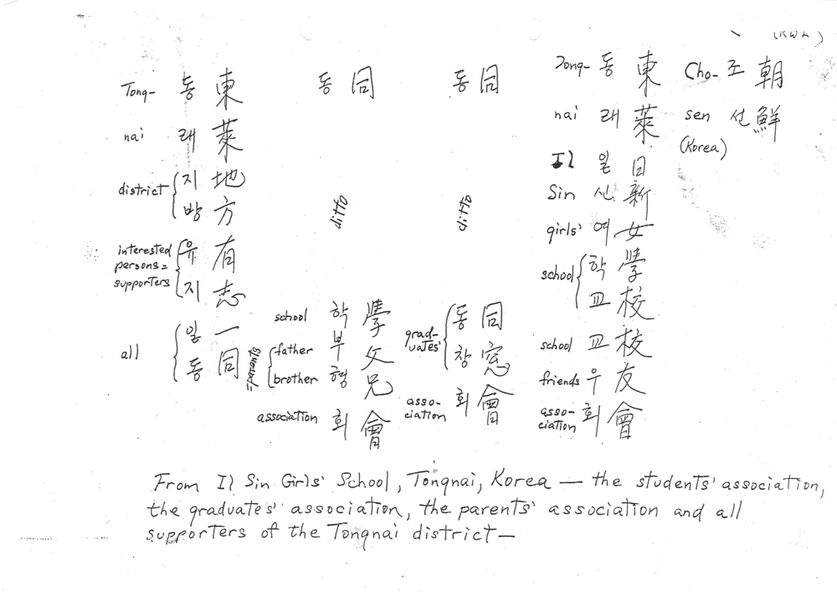 (KWK)
Cho- 조 朝
sen 선 鮮
(Korea)
Tong- 동 東
nai 래 萊
Il 일 日
Sin 신 新
girls' 여 女
school 학 學
교 校
school 교 校
friends 우 友
asso-
ciation 회 會
동 同
ditto
grad-
uates' 동 同
창 窓
asso-
ciation 회 會
동 同
ditto
school 학 學
father 부 父
brother 형 兄
=parents
association 회 會
Tong- 동 東
nai 래 萊
district 지 地
방 方
interested
persons=
supporters 유 有
지 志
all 일 一
동 同
From Il Sin Girls' School, Tongnai, Korea — the students' association,
the graduates' association, the parents' association and all
supporters of the Tongnai district—